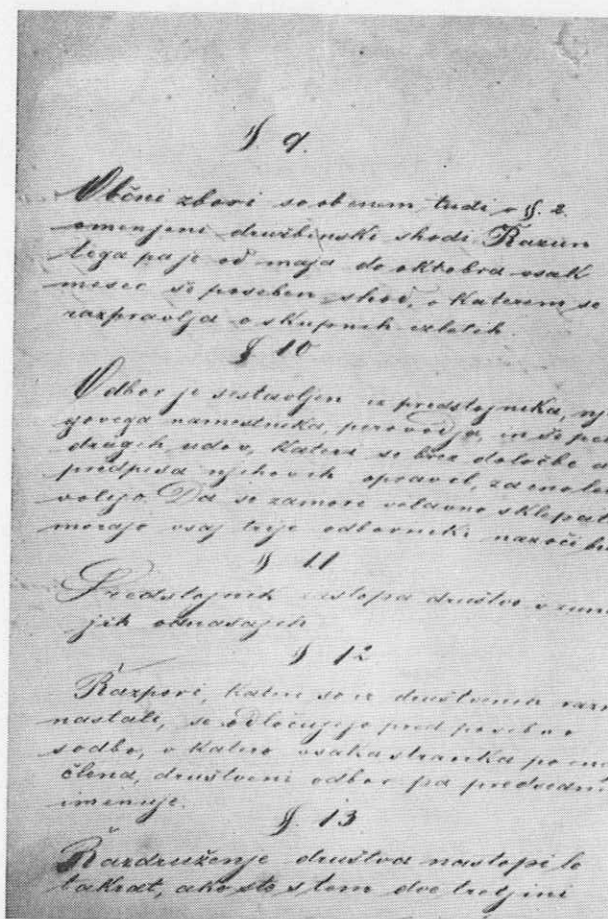 §. 9.
Občni zbori so obenem tudi v §. 2.
omenjeni družbinski shodi. Razun
tega pa je od maja do oktobra vsak
mesec še poseben shod, v katerem se
razpravlja o skupnih izletih.
§ 10
Odbor je sestavljen iz predstojnika, nje
govega namestnika, perovodja, in še pet
drugih udov, kateri se brez določbe a
predpisa njihovih opravil, za eno leto
volijo. Da se zamore veljavno sklepat
morajo vsaj trije odborniki nazoči bi
§ 11
Predstojnik zastopa društvo v zuna
jih odnašajih
§ 12
Razpori, kateri so iz društvenih razm
nastali, se odločujejo pred posebno
sodbo, v katero vsaka stranka po ene
člena, društveni odbor pa predsedni
imenuje.
§. 13
Razdruženje društva nastopi le
takrat, ako ste s tem dve tretjini